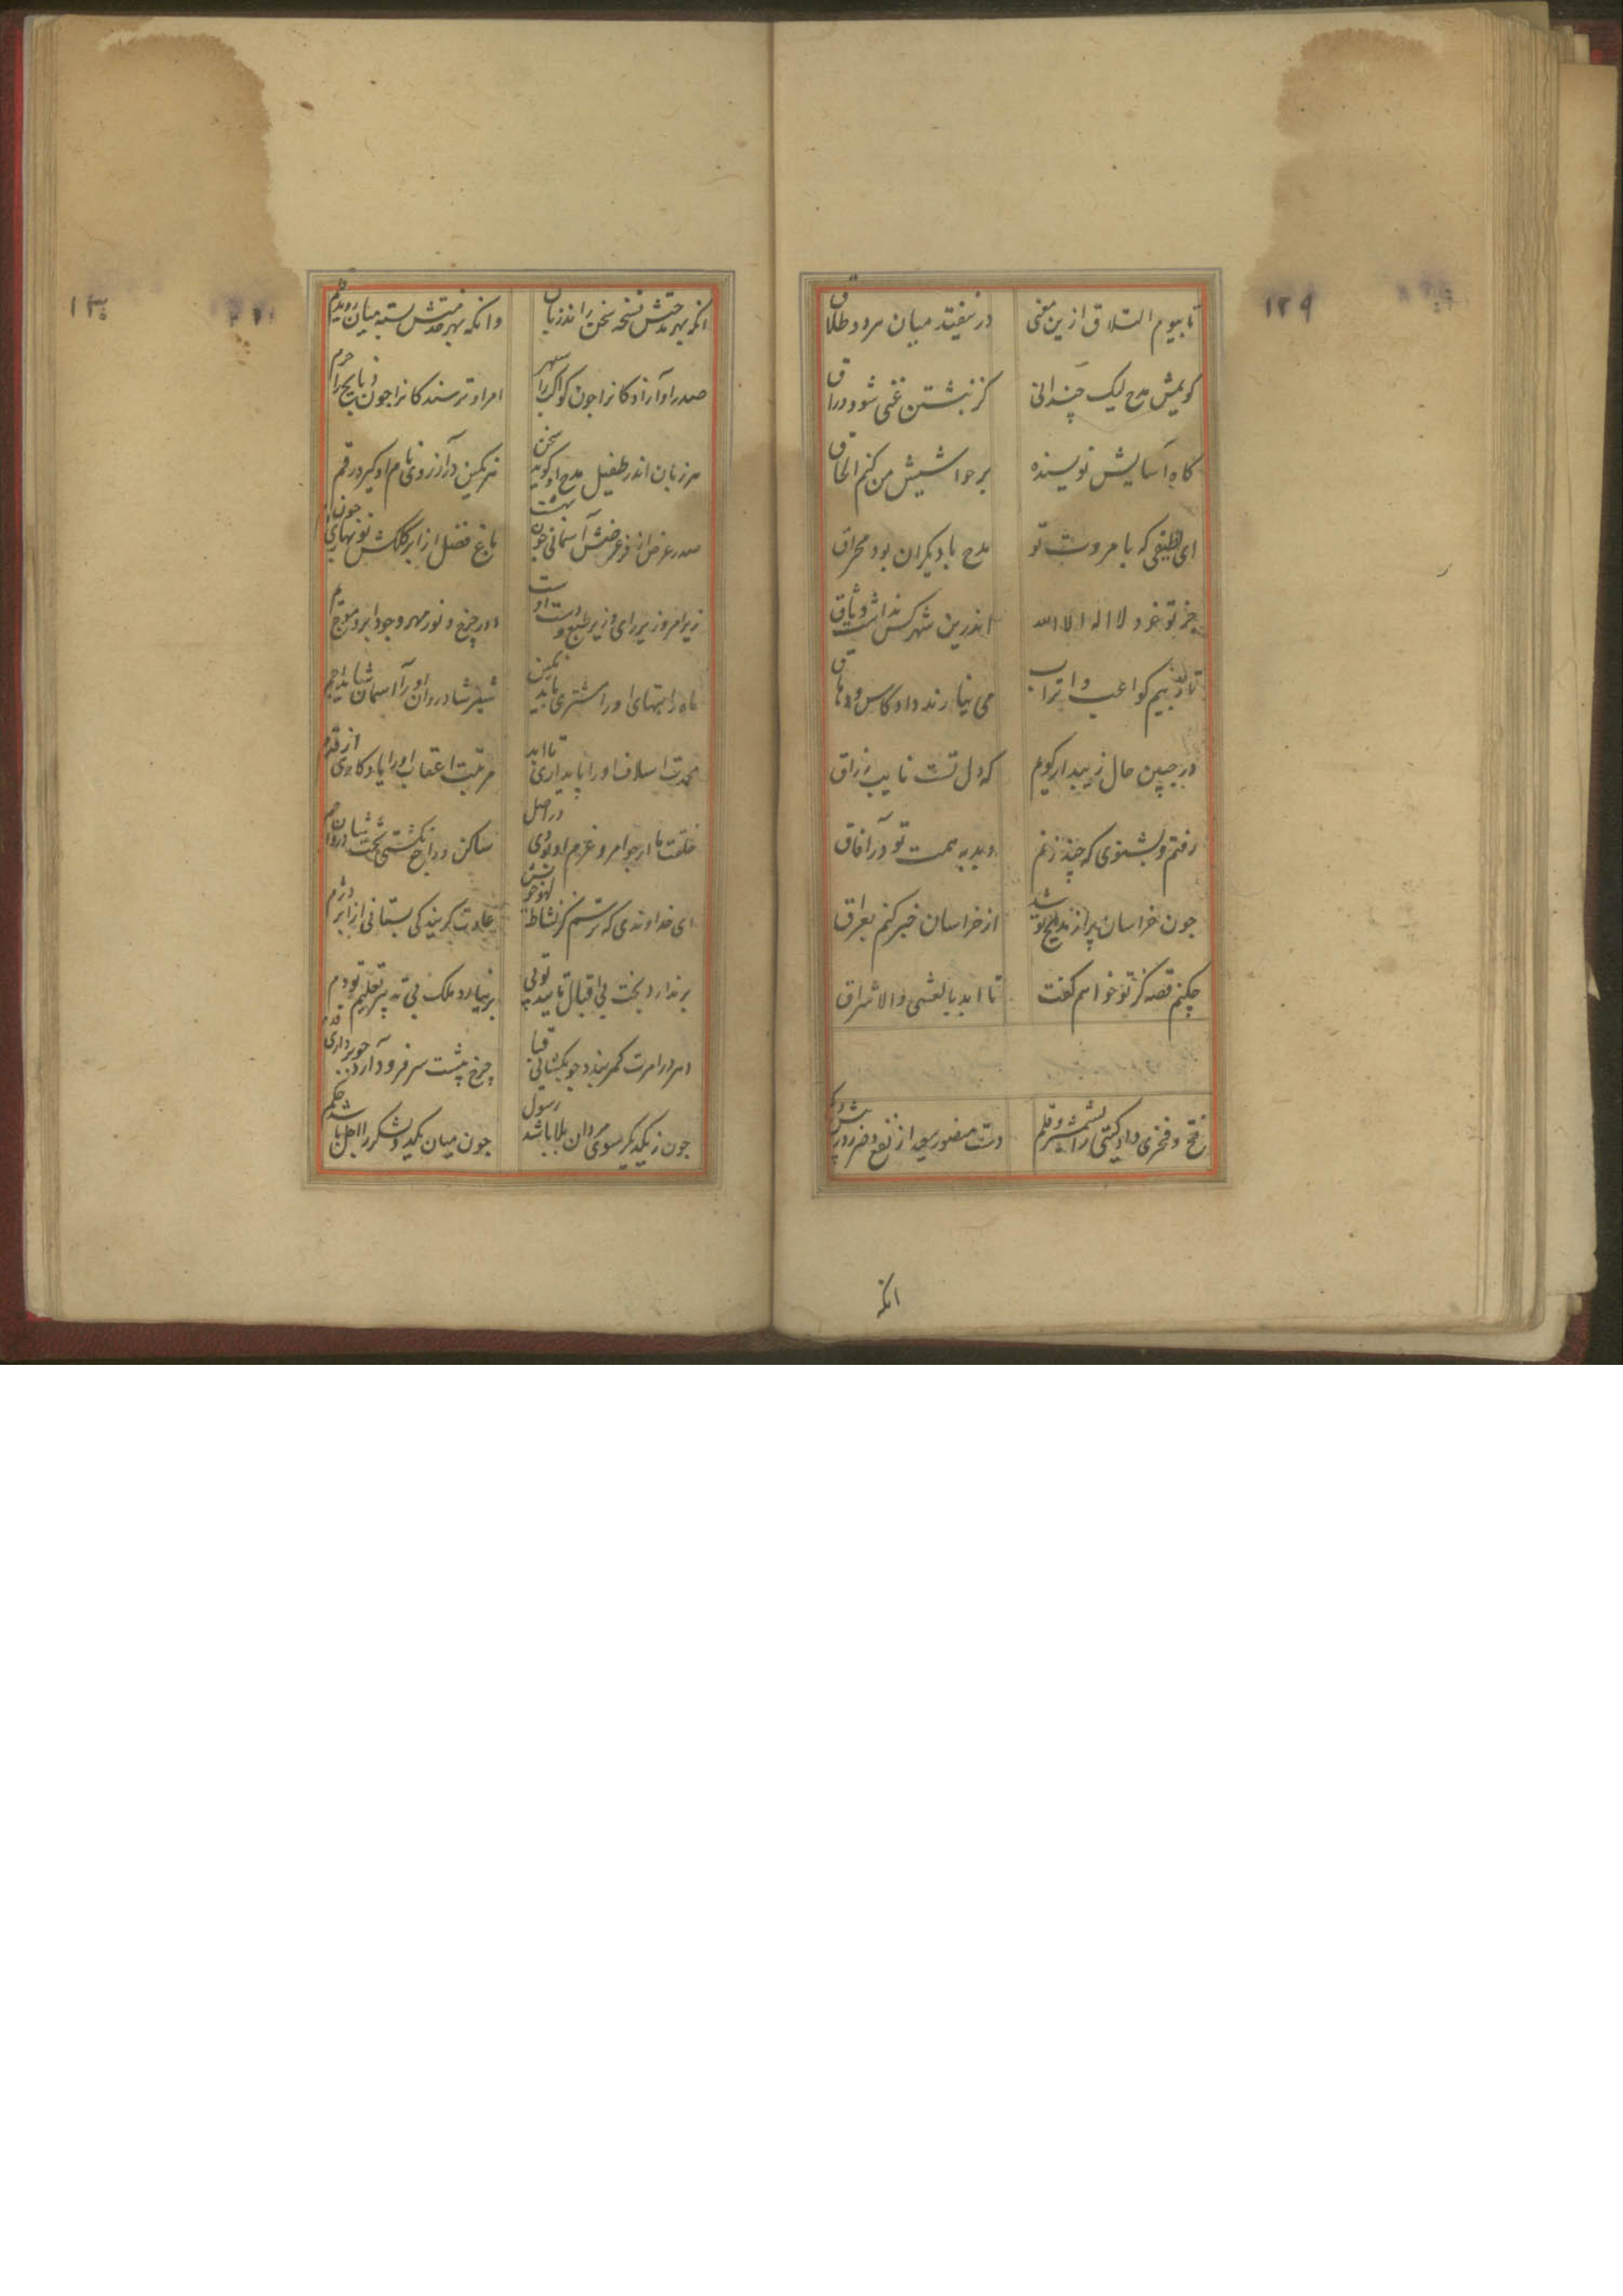 ۱۲۹
تا بیوم التلاق ازین معنی در نیفتد میان مرد و طلاق
کویمش مدح لیک چندانی کز نبشتن غنی شود وراق
کاه آسایش نویسنده بر حواشیش من کنم الحاق
ای لطیفی که با مروت تو مدح با دیکران بود مخراق
جز تو خود لا اله الا الله اندرین شهر کس نداشت وثاق
کواعب و اتراب می نیارند داد کاس دهاق
در چنین حال زیبد ار کویم که دل تست نایب رزاق
رفتم و بشنوی که چند زنم دبدبه همت تو در آفاق
جون خراسان پر از مدیح تو شد از خراسان خبر کنم بعراق
چکنم قصه کز تو خواهم کفت تا ابد بالعشی والاشراق
فتح و فخری داد کیتی را بشمشیر و قلم دست منصور سعید از نفع و ضر در
انکه
۱۳۰
انکه بهر مدحتش نسخه سخن را اندر زبان وانکه بهر خدمتش بسته میان روید قلم
صدر او آزادکانرا جون کواکب را سپهر امر او ترسندکانرا جون ذبایح را حرم
هر زبان اندر طفیل مدح او کوید سخن هر نکین در آرزوی نام او کیرد رقم
صدر عرض از فر عرضش آسمانی جون بهشت باغ فضل از ابر کلکش نوبهاری جون ارم
زیر امر و زیر رای و زیر طبع و دست اوست دور چرخ و نور مهر و جود ابر و موج یم
ماه رایتهای او را مشتری باید نکین شیر شادروان او را آسمان شاید اجم
محمدت اسلاف او را پایداری تا ابد مرتبت اعقاب او را یادکاری از قدم
خلقت ما ار جو امر و عزم او بودی در اصل ساکن و دراج نکشتی
ای خداوندی که رسم کز نشاط لهو خویش عادت کریندکی بستانی از ابر دژم
برندارد بخت بی اقبال تایید تو پی برنیارد ملک بی تدبیر تعلیم تو دم
دهر در امرت کمر بندد جو بکشائی قبا چرخ پیشت سر فرود آرد جو برداری قدم
جون ز یکدیکر سوی دان بلا باشد رسول جون میان یکدکر لشکر را اجل باشد حکم